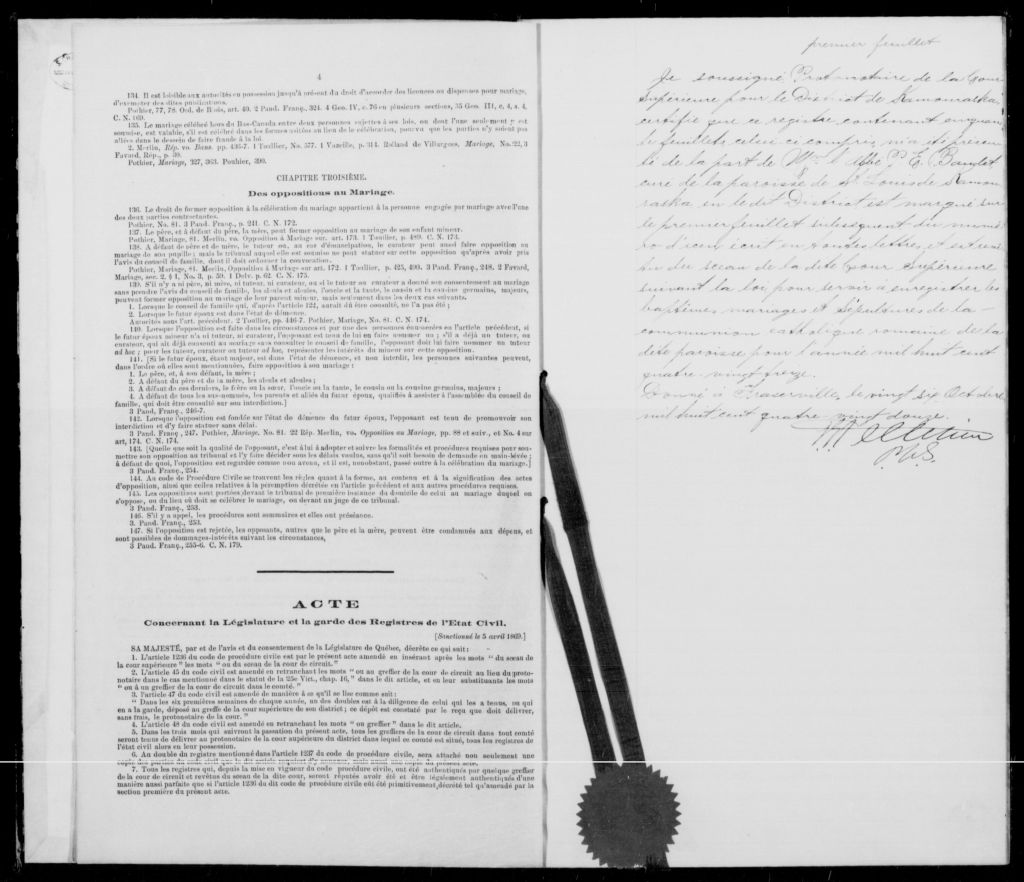 4
134. Il est loisible aux autorités en possession jusqu'à présent du droit d'accorder des licences ou dispenses pour mariage,
d'exempter des dites publications.
Pothier, 77, 78. Ord. de Blois, art. 40. 2 Pand. Franç. 324. 4 Geo. IV, c. 76 en plusieurs sections, 35 Geo. III, c. 4, s. 4,
C. N. 169.
135. Le mariage célébré hors du Bas-Canada entre deux personnes sujettes à ses lois, ou dont l'une seulement y est
soumise, est valable, s'il est célébré dans les formes usitées au lieu de la célébration, pourvu que les parties n'y soient pas
allées dans le dessein de faire fraude à la loi.
2. Merlin, Rép. vo. Bans. pp. 436-7. 1 Toullier, No. 577. 1 Vazeille, p. 314. Rolland de Villargues, Mariage, No. 22, 3
Favard, Rép., p. 39.
Pothier, Mariage, 227, 363. Pothier, 390.
CHAPITRE TROISIÈME.
Des oppositions au Mariage.
136. Le droit de former opposition à la célébration du mariage appartient à la personne engagée par mariage avec l'une
des deux parties contractantes.
Pothier, No. 81. 3 Pand. Franç., p. 241. C. N. 172.
137. Le père, et à défaut du père, la mère, peut former opposition au mariage de son enfant mineur.
Pothier, Mariage, 81. Merlin, vo. Opposition à Mariage sur. art. 173. 1 Toullier, p. 489. C. N. 173.
138. A défaut de père et de mère, le tuteur ou, au cas d'émancipation, le curateur peut aussi faire opposition au
mariage de son pupille; mais le tribunal auquel elle est soumise ne peut statuer sur cette opposition qu'après avoir pris
l'avis du conseil de famille, dont il doit ordonner la convocation.
Pothier, Mariage, 81. Merlin, Opposition à Mariage sur art. 172. 1 Toullier, p. 425, 490. 3 Pand. Franç., 248. 2 Favard,
Mariage, sec. 2, § 1, No. 3, p. 59. 1 Delv. p. 62. C. N. 175.
139. S'il n'y a ni père, ni mère, ni tuteur, ni curateur, ou si le tuteur ou curateur a donné son consentement au mariage
sans prendre l'avis du conseil de famille, les aïeuls et aïeules, l'oncle et la tante, le cousin et la cousine germains, majeurs,
peuvent former opposition au mariage de leur parent mineur, mais seulement dans les deux cas suivants.
1. Lorsque le conseil de famille qui, d'après l'article 122, aurait dû être consulté, ne l'a pas été;
2. Lorsque le futur époux est dans l'état de démence.
Autorités sous l'art. précédent. 2 Toullier, pp. 446-7. Pothier, Mariage, No. 81. C. N. 174.
140. Lorsque l'opposition est faite dans les circonstances et par une des personnes énoncées en l'article précédent, si
le futur époux mineur n'a ni tuteur, ni curateur, l'opposant est tenu de lui en faire nommer un; s'il a déjà un tuteur, ou
curateur, qui ait déjà consenti au mariage sans consulter le conseil de famille, l'opposant doit lui faire nommer un tuteur
ad hoc; pour les tuteur, curateur ou tuteur ad hoc, représenter les intérêts du mineur sur cette opposition.
141. [Si le futur époux, étant majeur, est dans l'état de démence, et non interdit, les personnes suivantes peuvent,
dans l'ordre où elles sont mentionnées, faire opposition à son mariage:
1. Le père, et, à son défaut, la mère;
2. A défaut du père et de la mère, les aïeuls et aïeules;
3. A défaut de ces derniers, le frère ou la sœur, l'oncle ou la tante, le cousin ou la cousine germains, majeurs;
4. A défaut de tous les sus-nommés, les parents et alliés du futur époux, qualifiés à assister à l'assemblée du conseil de
famille, qui doit être consulté sur son interdiction.]
3 Pand. Franç., 246-7.
142. Lorsque l'opposition est fondée sur l'état de démence du futur époux, l'opposant est tenu de promouvoir son
interdiction et d'y faire statuer sans délai.
3 Pand. Franç., 247. Pothier, Mariage, No. 81. 22 Rép. Merlin, vo. Opposition au Mariage, pp. 88 et suiv., et No. 4 sur
art, 174. C. N. 174.
143. [Quelle que soit la qualité de l'opposant, c'est à lui à adopter et suivre les formalités et procédures requises pour sou-
mettre son opposition au tribunal et l'y faire décider sous les délais voulus, sans qu'il soit besoin de demande en main-levée;
à défaut de quoi, l'opposition est regardée comme non avenu, et il est, nonobstant, passé outre à la célébration du mariage.]
3 Pand. Franç., 254.
144. Au code de Procédure Civile se trouvent les règles quant à la forme, au contenu et à la signification des actes
d'opposition, ainsi que celles relatives à la péremption décrétée en l'article précédent et aux autres procédures requises.
145. Les oppositions sont portées devant le tribunal de première instance du domicile de celui au mariage duquel on
s'oppose, ou du lieu où doit se célébrer le mariage, ou devant un juge de ce tribunal.
3 Pand. Franç., 253.
146. S'il y a appel, les procédures sont sommaires et elles ont préséance.
3. Pand. Franç., 253.
147. Si l'opposition est rejetée, les opposants, autres que le père et la mère, peuvent être condamnés aux dépens, et
sont passibles de dommages-intérêts suivant les circonstances,
3 Pand. Franç., 255-6. C. N. 179.
ACTE
Concernant la Législature et la garde des Registres de l'Etat Civil.
[Sanctionné le 5 avril 1869.]
SA MAJESTÉ, par et de l'avis et du consentement de la Législature de Québec, décrète ce qui suit:
1. L'article 1236 du code de procédure civile est par le présent acte amendé en insérant après les mots "du sceau de
la cour supérieure" les mots "ou du sceau de la cour de circuit."
2. L'article 45 du code civil est amendé en retranchant les mots "ou au greffier de la cour de circuit au lieu du proto-
notaire dans le cas mentionné dans le statut de la 25e Vict., chap. 16," dans le dit article, et en leur substituants les mots
"ou à un greffier de la cour de circuit dans le comté."
3. l'article 47 du code civil est amendé de manière à ce qu'il se lise comme suit:
"Dans les six premières semaines de chaque année, un des doubles est à la diligence de celui qui les a tenus, ou qui
en a la garde, déposé au greffe de la cour supérieure de son district; ce dépôt est constaté par le reçu que doit délivrer,
sans frais, le protonotaire de la cour."
4. L'article 48 du code civil est amendé en retranchant les mots "ou greffier" dans le dit article.
5. Dans les trois mois qui suivront la passation du présent acte, tous les greffiers de la cour de circuit dans tout comté
seront tenus de délivrer au protonotaire de la cour supérieure du district dans lequel ce comté est situé, tous les registres de
l'état civil alors en leur possession.
6. Au double du registre mentionné dans l'article 1237 du code de procédure civile, sera attaché non seulement une
copie des parties du code civil que le dit article requiert d'y annexer, mais aussi une copie du présent acte.
7. Tous les registres qui, depuis la mise en vigueur du code procédure civile, ont été authentiqués par quelque greffier
de la cour de circuit et revêtus du sceau de la dite cour, seront réputés avoir été et être légalement authentiqués d'une
manière aussi parfaite que si l'article 1236 du dit code de procédure civile eût été primitivement décrété tel qu'amendé par la
section première du présent acte.
premier feuillet
Je soussigné Protonotaire de la Cour
Supérieure pour le District de Kamouraska
certifie que ce registre contenant cinquan
te feuillets celui ci compris, m'a été présen
té de la part de Mr l'Abbé
curé de la paroisse de St Louis de Kamou
raska en le dit District est marqué sur
le premier feuillet et subséquent du numé
ro d'iceux écrit en toutes lettres, et est revê
tu du sceau de la dite Cour Supérieure
suivant la loi pour servir à enregistrer les
baptêmes, mariages et Sépultures de la
communion catholique romaine de la
dite paroisse pour l'année mil huit cent
quatre vingt treize.
Donné à Fraserville, le vingt six Octobre
mil huit cent quatre vingt douze.
Pelletier
P.C.S.